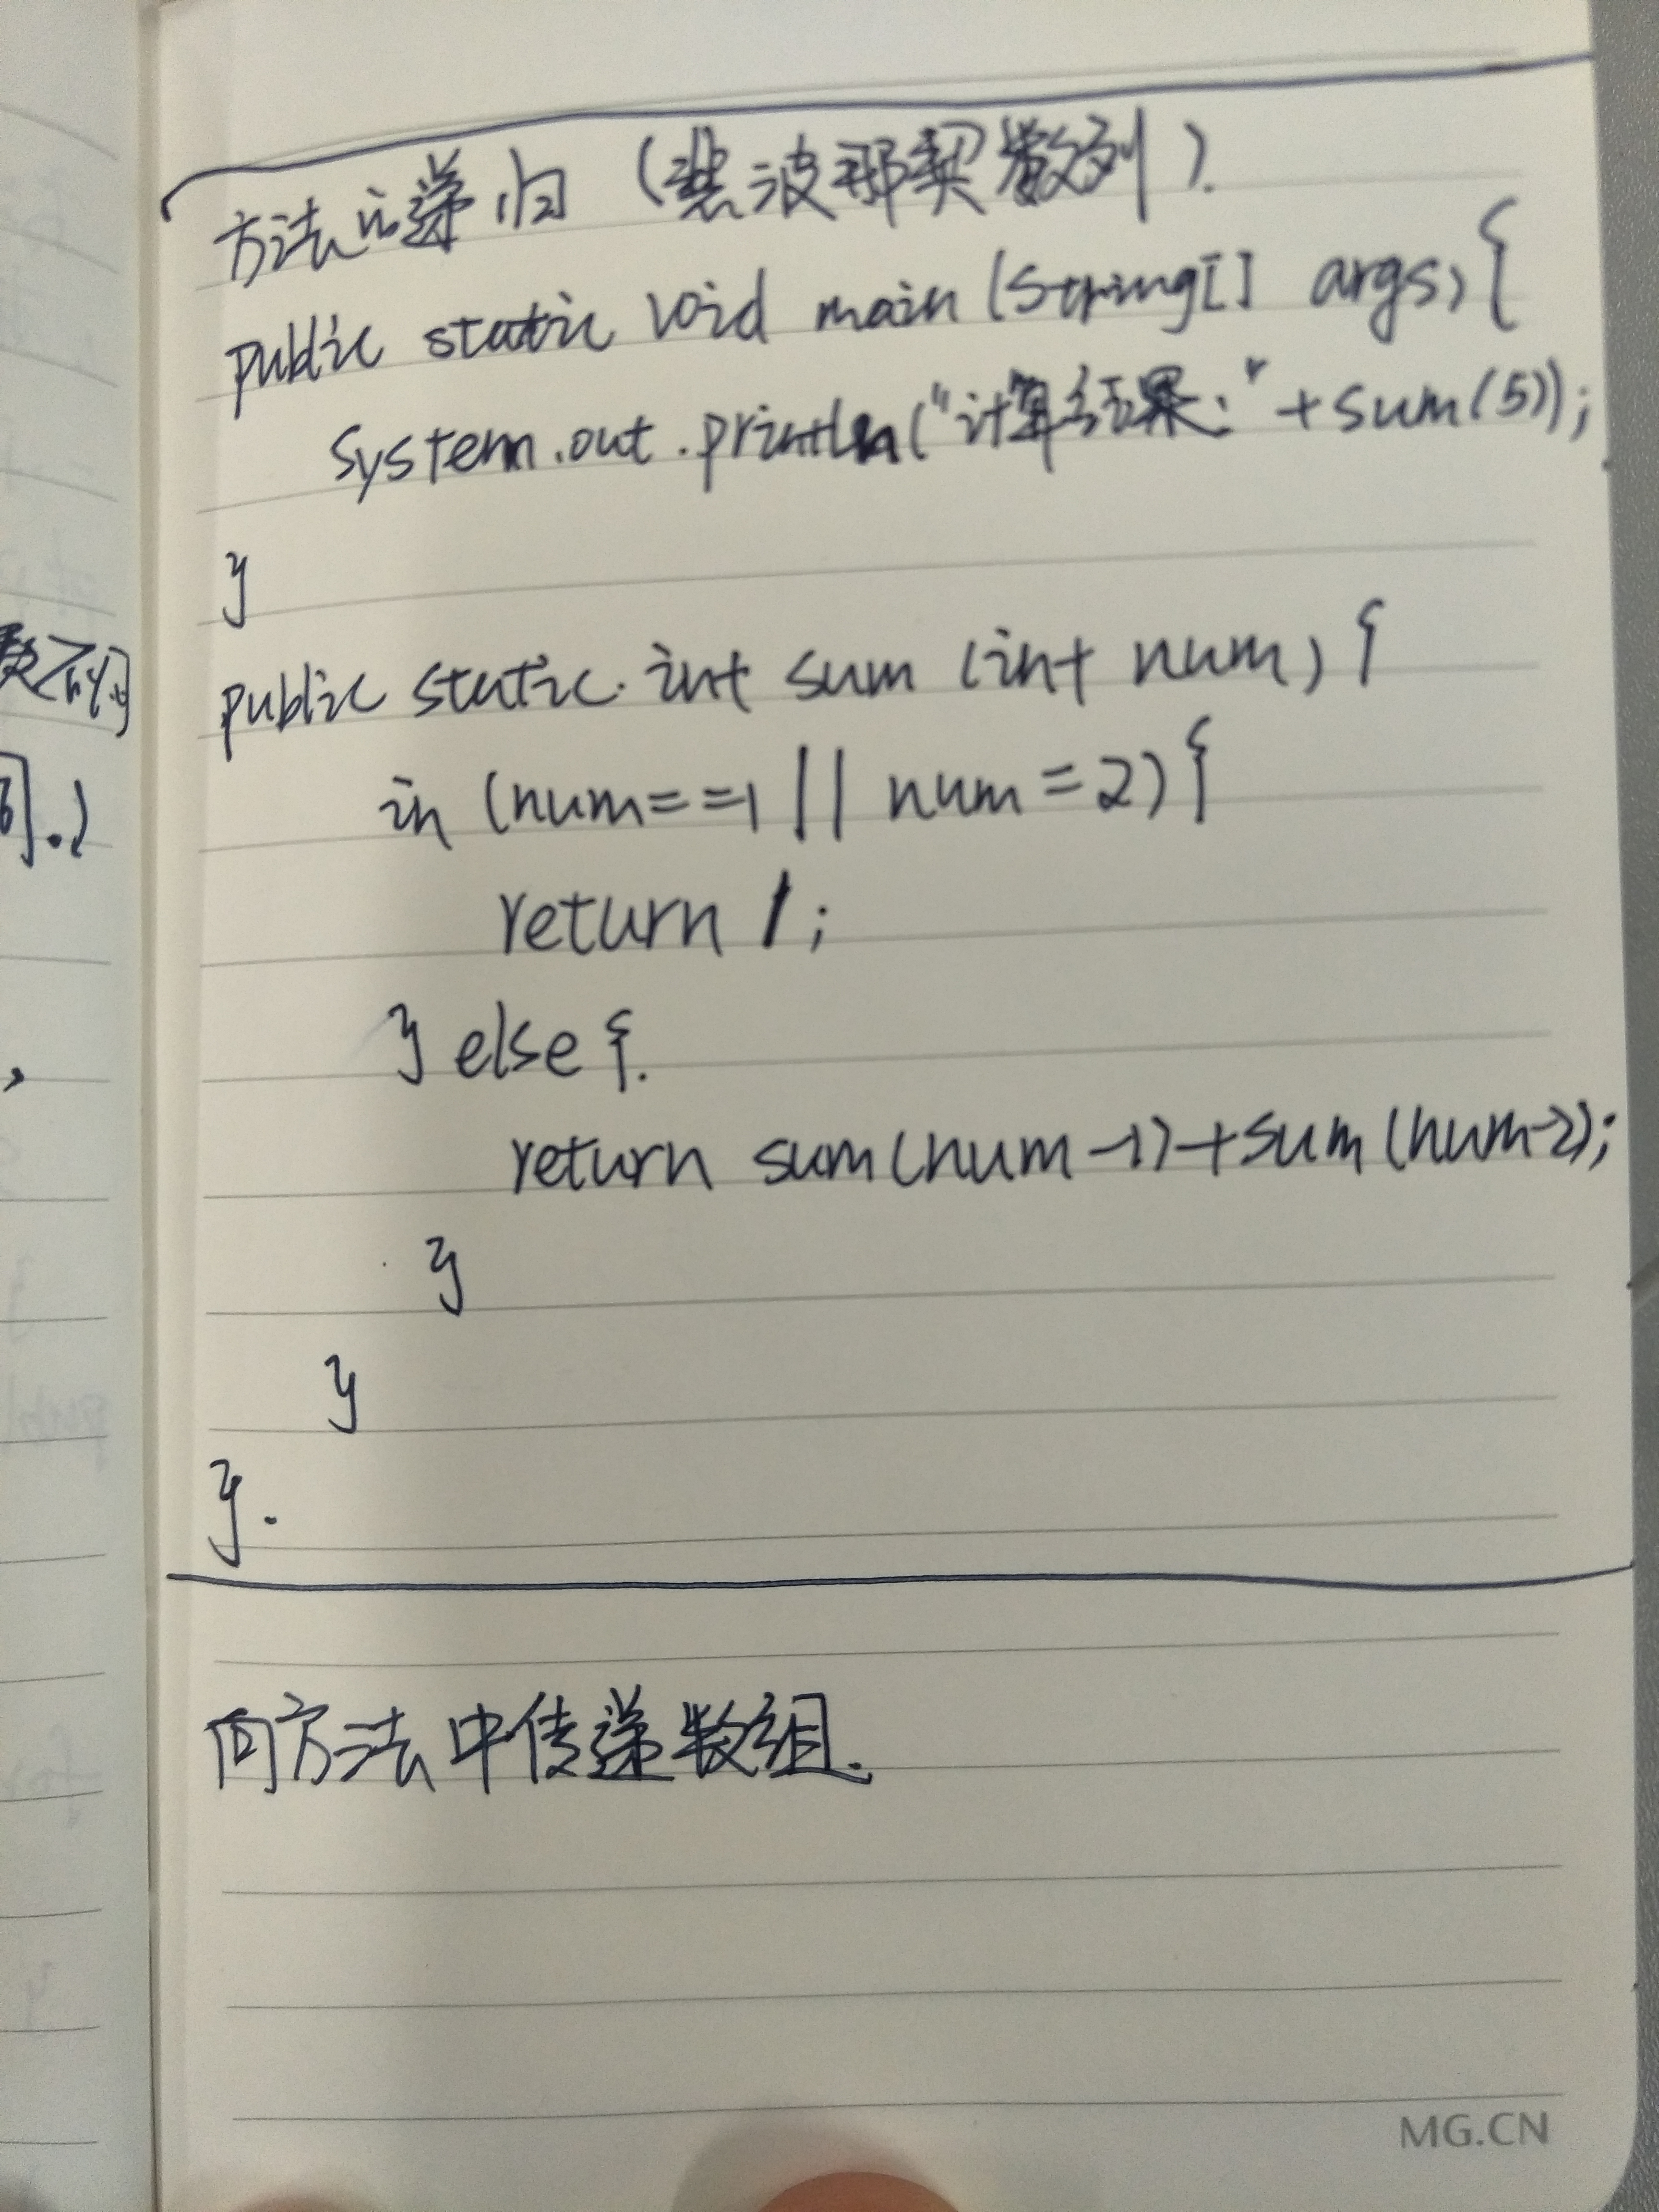 方法的递归（斐波那契数列）.
public static void main (String[] args) {
System.out.println("计算结果:"+sum(5));
}
public static int sum (int num) {
in (num==1 || num=2) {
return 1;
} else {.
return sum(num-1)+sum(num-2);
}
}
}.
向方法中传递数组.
MG.CN